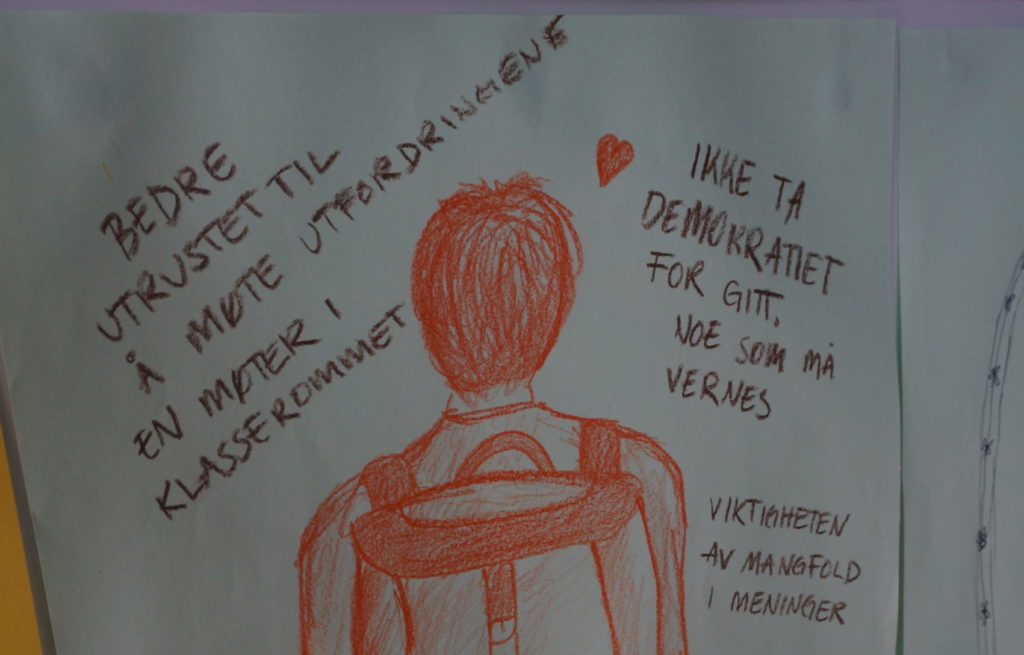 BEDRE
UTRUSTET TIL
Å MØTE UTFORDRINGENE
EN MØTER I
KLASSEROMMET
IKKE TA
DEMOKRATIET
FOR GITT,
NOE SOM MÅ
VERNES
VIKTIGHETEN
AV MANGFOLD
I MENINGER